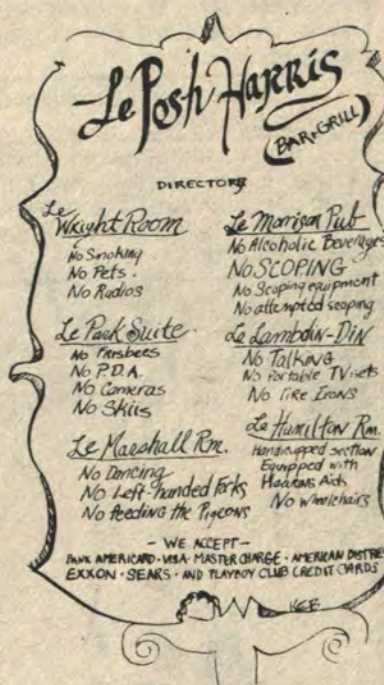 Le Posh Harris
(BAR & GRILL)
DIRECTORY
Le Wright Room
No Smoking
No Pets.
No Radios
Le Park Suite
No Frisbees
No P.D.A.
No Cameras
No Skiis
Le Marshall Rm.
No Dancing
No Left-handed Forks
No feeding the Pigeons
Le Morrison Pub
No Alcoholic Beverages
NO SCOPING
No Scoping equipment
No attempted scoping
Le Lambdin-Din
No Talking
No Portable TV sets
No Tire Irons
Le Hamilton Rm.
Handicapped section
Equipped with
Hearing Aids
No Wheelchairs
- WE ACCEPT -
BANK AMERICARD · VISA · MASTER CHARGE · AMERICAN DISTRE
EXXON · SEARS · AND PLAYBOY CLUB CREDIT CARDS